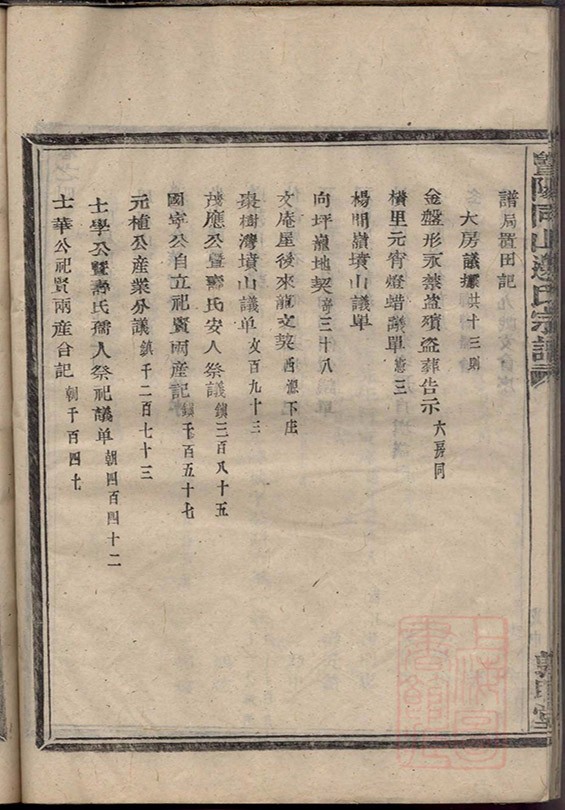 暨陽同山邊氏宗譜
譜局置田記
大房議據共十三則
金盤形永禁盜殯盜葬告示六房同
橫里元宵燈蜡議單憲三
楊開嶺墳山議單
向坪嶺地契奇三十八
文庵星後來龍文契西源下庄
棗樹灣墳山議單文百九十三
茂應公暨壽氏安人祭議鎮三百八十五
國寧公自立祀賢兩產記鎮千百五十七
元植公產業分議鎮千二百七十三
士學公暨壽氏孺人祭祀議單朝四百四十二
士華公祀賢兩產合記朝千百四七
敦睦堂